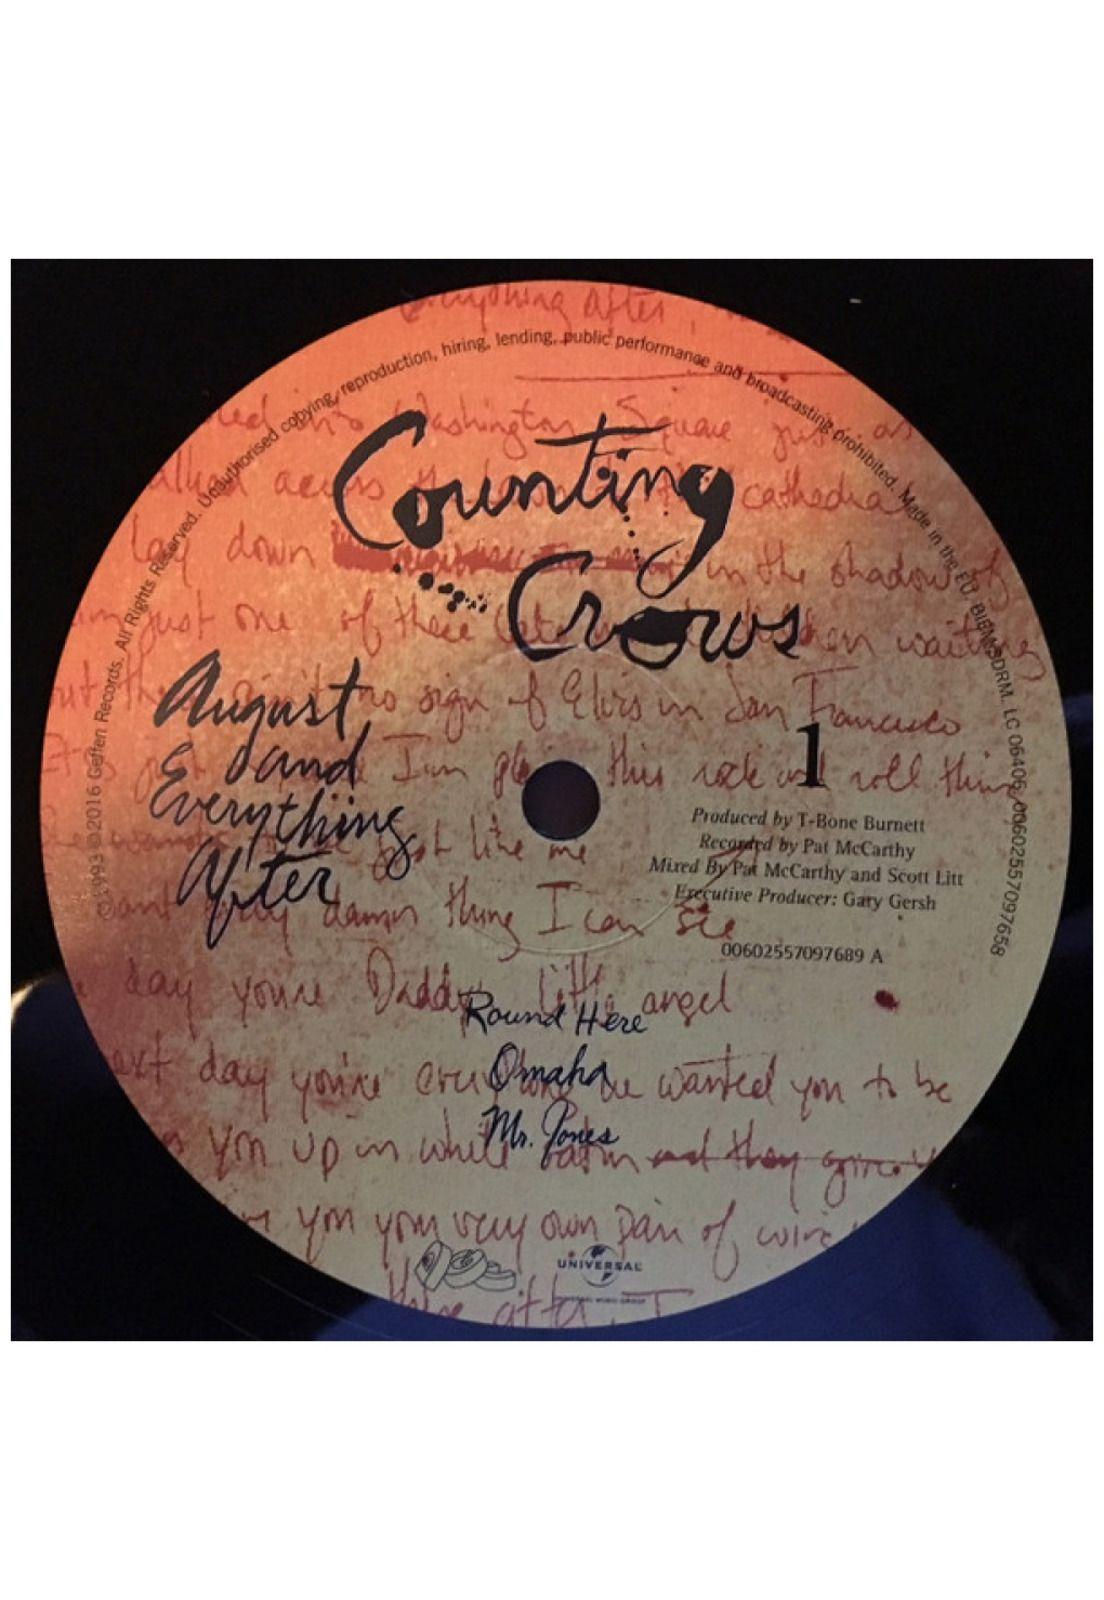 everything after,
℗1993 ©2016 Geffen Records. All Rights Reserved. Unauthorised copying, reproduction, hiring, lending, public performance and broadcasting prohibited. Made in the EU BIEM/SDRM. LC 06406 00602557097658
Counting
Crows
August
and
Everything
After
1
Produced by T-Bone Burnett
Recorded by Pat McCarthy
Mixed By Pat McCarthy and Scott Litt
Executive Producer: Gary Gersh
00602557097689 A
Round Here
Omaha
Mr. Jones
Washington Square just as
across cathedral
lay down in the shadow of
just one of these waiting
no sign of Elvis in San Francisco
I'm this rock and roll thing
just like me
damn thing I can see
day you're Daddy's little angel
next day you're wanted you to be
you up in white satin and they give
you your very own pair of
UNIVERSAL
UNIVERSAL MUSIC GROUP
after I